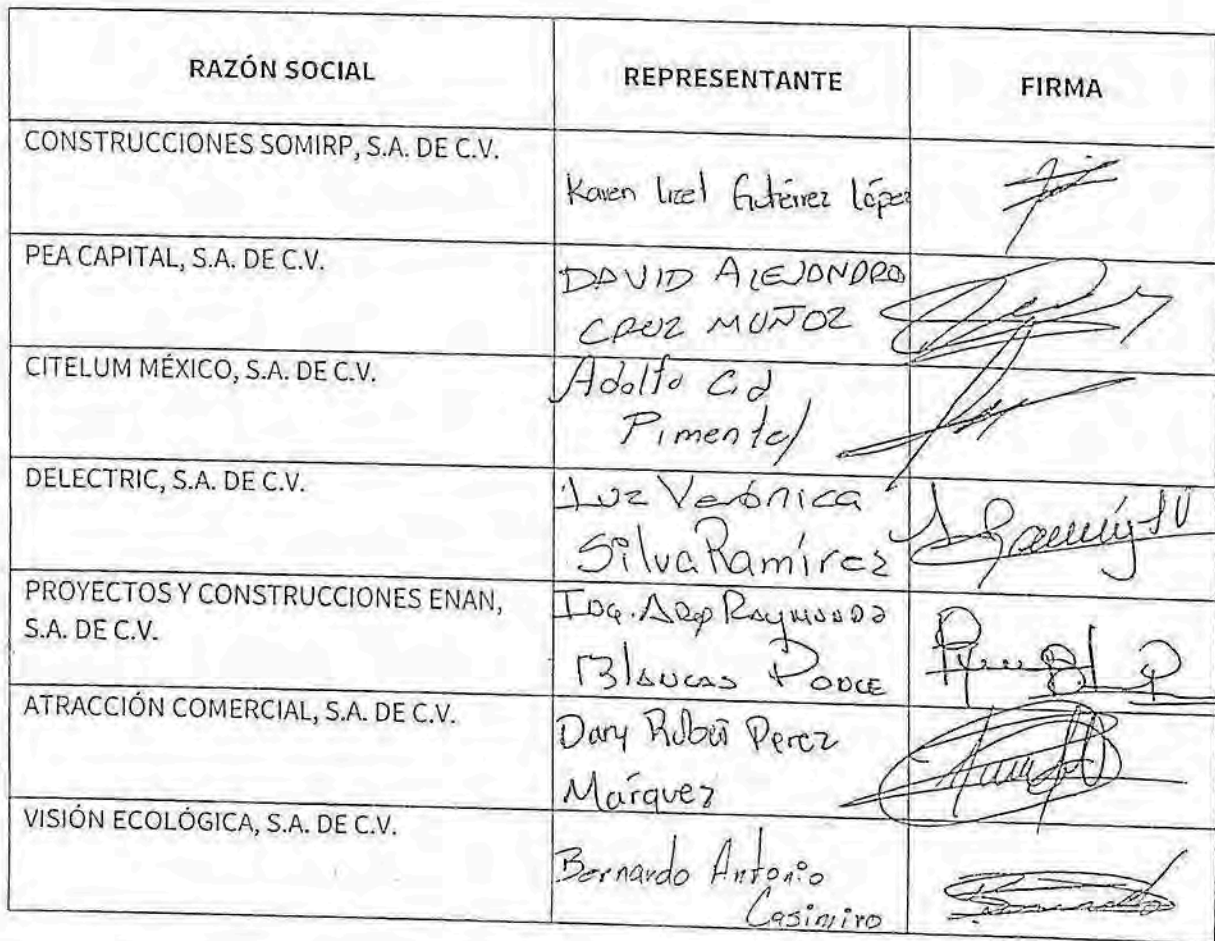 RAZÓN SOCIAL REPRESENTANTE FIRMA
CONSTRUCCIONES SOMIRP, S.A. DE C.V.
Karen Lizel Gutiérrez López
PEA CAPITAL, S.A. DE C.V.
DAVID ALEJANDRO
CRUZ MUÑOZ
CITELUM MÉXICO, S.A. DE C.V.
Adolfo Cid
Pimentel
DELECTRIC, S.A. DE C.V.
Luz Verónica
Silva Ramírez
PROYECTOS Y CONSTRUCCIONES ENAN,
S.A. DE C.V.
Ing. Arq Raymundo
Blancas Ponce
ATRACCIÓN COMERCIAL, S.A. DE C.V.
Dany Rubén Perez
Márquez
VISIÓN ECOLÓGICA, S.A. DE C.V.
Bernardo Antonio
Casimiro